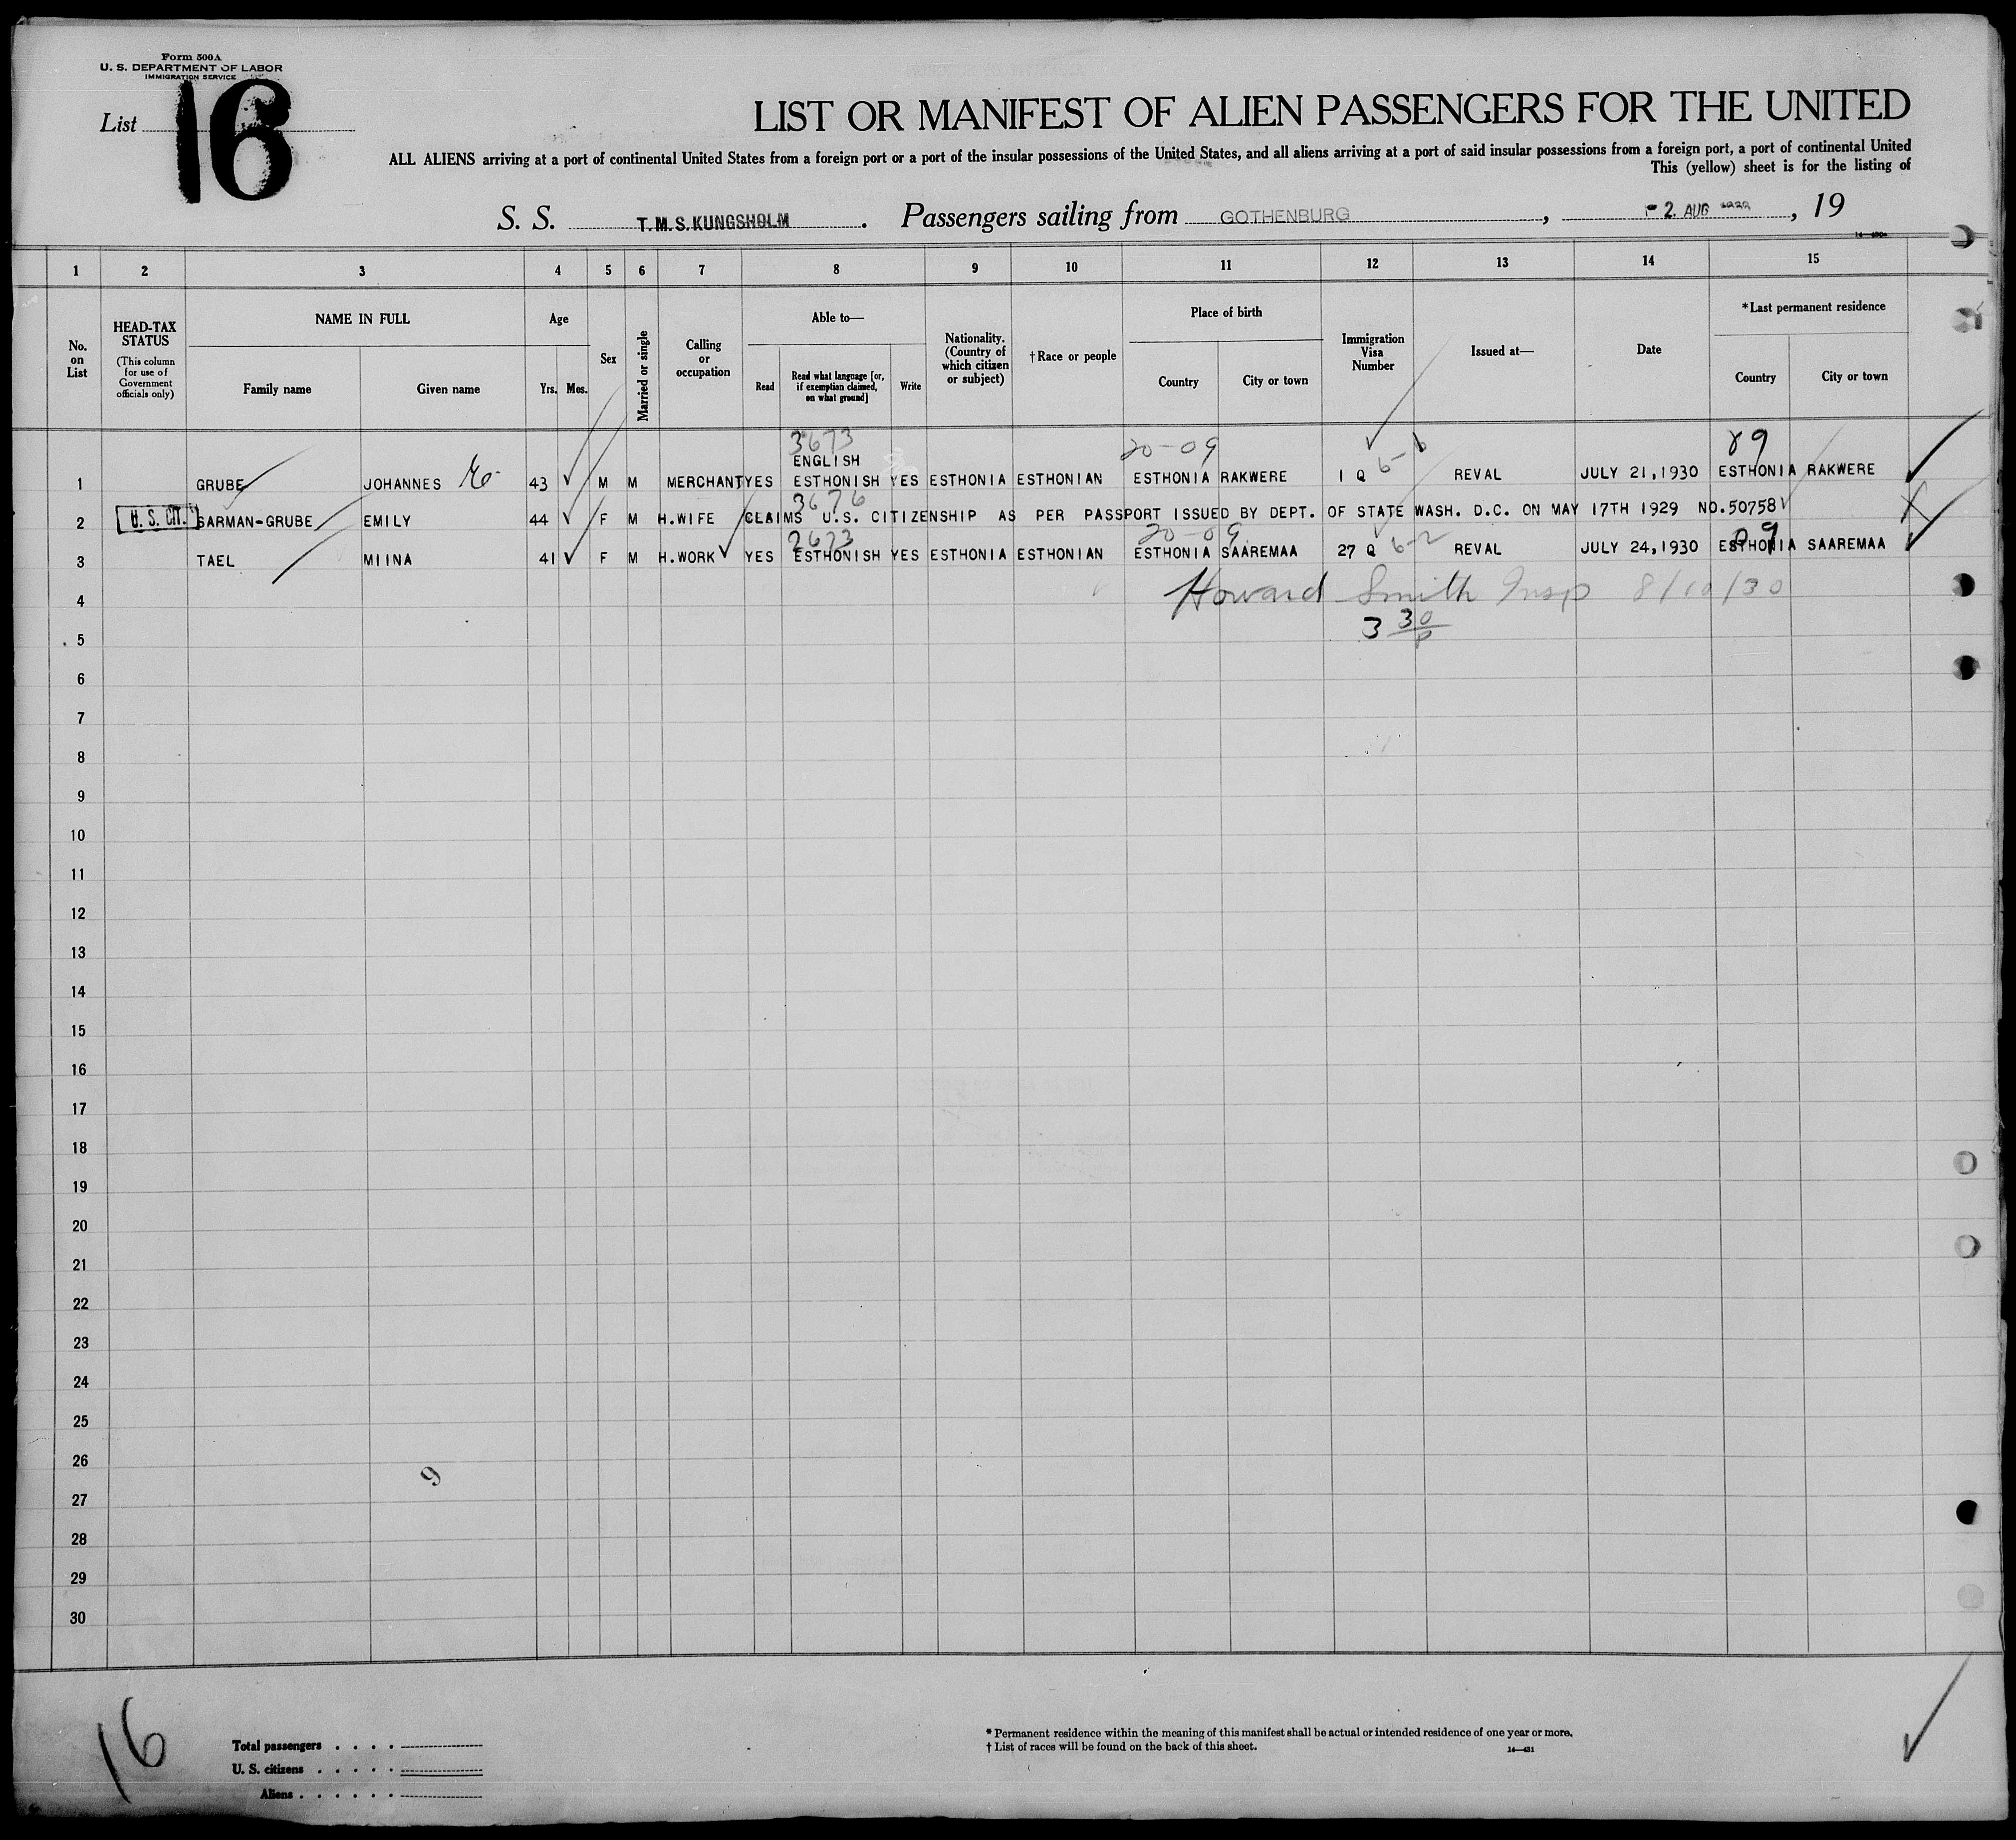 Form 500A
U. S. DEPARTMENT OF LABOR
IMMIGRATION SERVICE
List 16
LIST OR MANIFEST OF ALIEN PASSENGERS FOR THE UNITED
ALL ALIENS arriving at a port of continental United States from a foreign port or a port of the insular possessions of the United States, and all aliens arriving at a port of said insular possessions from a foreign port, a port of continental United
This (yellow) sheet is for the listing of
S. S. T.M.S. KUNGSHOLM . Passengers sailing from GOTHENBURG , 2. AUG , 19
1 2 3 4 5 6 7 8 9 10 11 12 13 14 15
No. on List
HEAD-TAX STATUS
(This column for use of Government officials only)
NAME IN FULL
Family name
Given name
Age
Yrs. Mos.
Sex
Married or single
Calling or occupation
Able to—
Read
Read what language [or, if exemption claimed, on what ground]
Write
Nationality. (Country of which citizen or subject)
† Race or people
Place of birth
Country
City or town
Immigration Visa Number
Issued at—
Date
*Last permanent residence
Country
City or town
3673
20-09
89
ENGLISH
1 GRUBE JOHANNES 43 M M MERCHANT YES ESTHONISH YES ESTHONIA ESTHONIAN ESTHONIA RAKWERE 1 Q REVAL JULY 21,1930 ESTHONIA RAKWERE
3676
2 U.S. CIT. SARMAN-GRUBE EMILY 44 F M H.WIFE CLAIMS U.S. CITIZENSHIP AS PER PASSPORT ISSUED BY DEPT. OF STATE WASH. D.C. ON MAY 17TH 1929 NO.50758
2673
20-09
09
3 TAEL MIINA 41 F M H.WORK YES ESTHONISH YES ESTHONIA ESTHONIAN ESTHONIA SAAREMAA 27 Q 6-2 REVAL JULY 24,1930 ESTHONIA SAAREMAA
4 Howard Smith Insp 8/10/30
5 3 30/P
6
7
8
9
10
11
12
13
14
15
16
17
18
19
20
21
22
23
24
25
26
9
27
28
29
30
16
Total passengers . . . .
U. S. citizens . . . . .
Aliens . . . . . .
* Permanent residence within the meaning of this manifest shall be actual or intended residence of one year or more.
† List of races will be found on the back of this sheet.
14—431